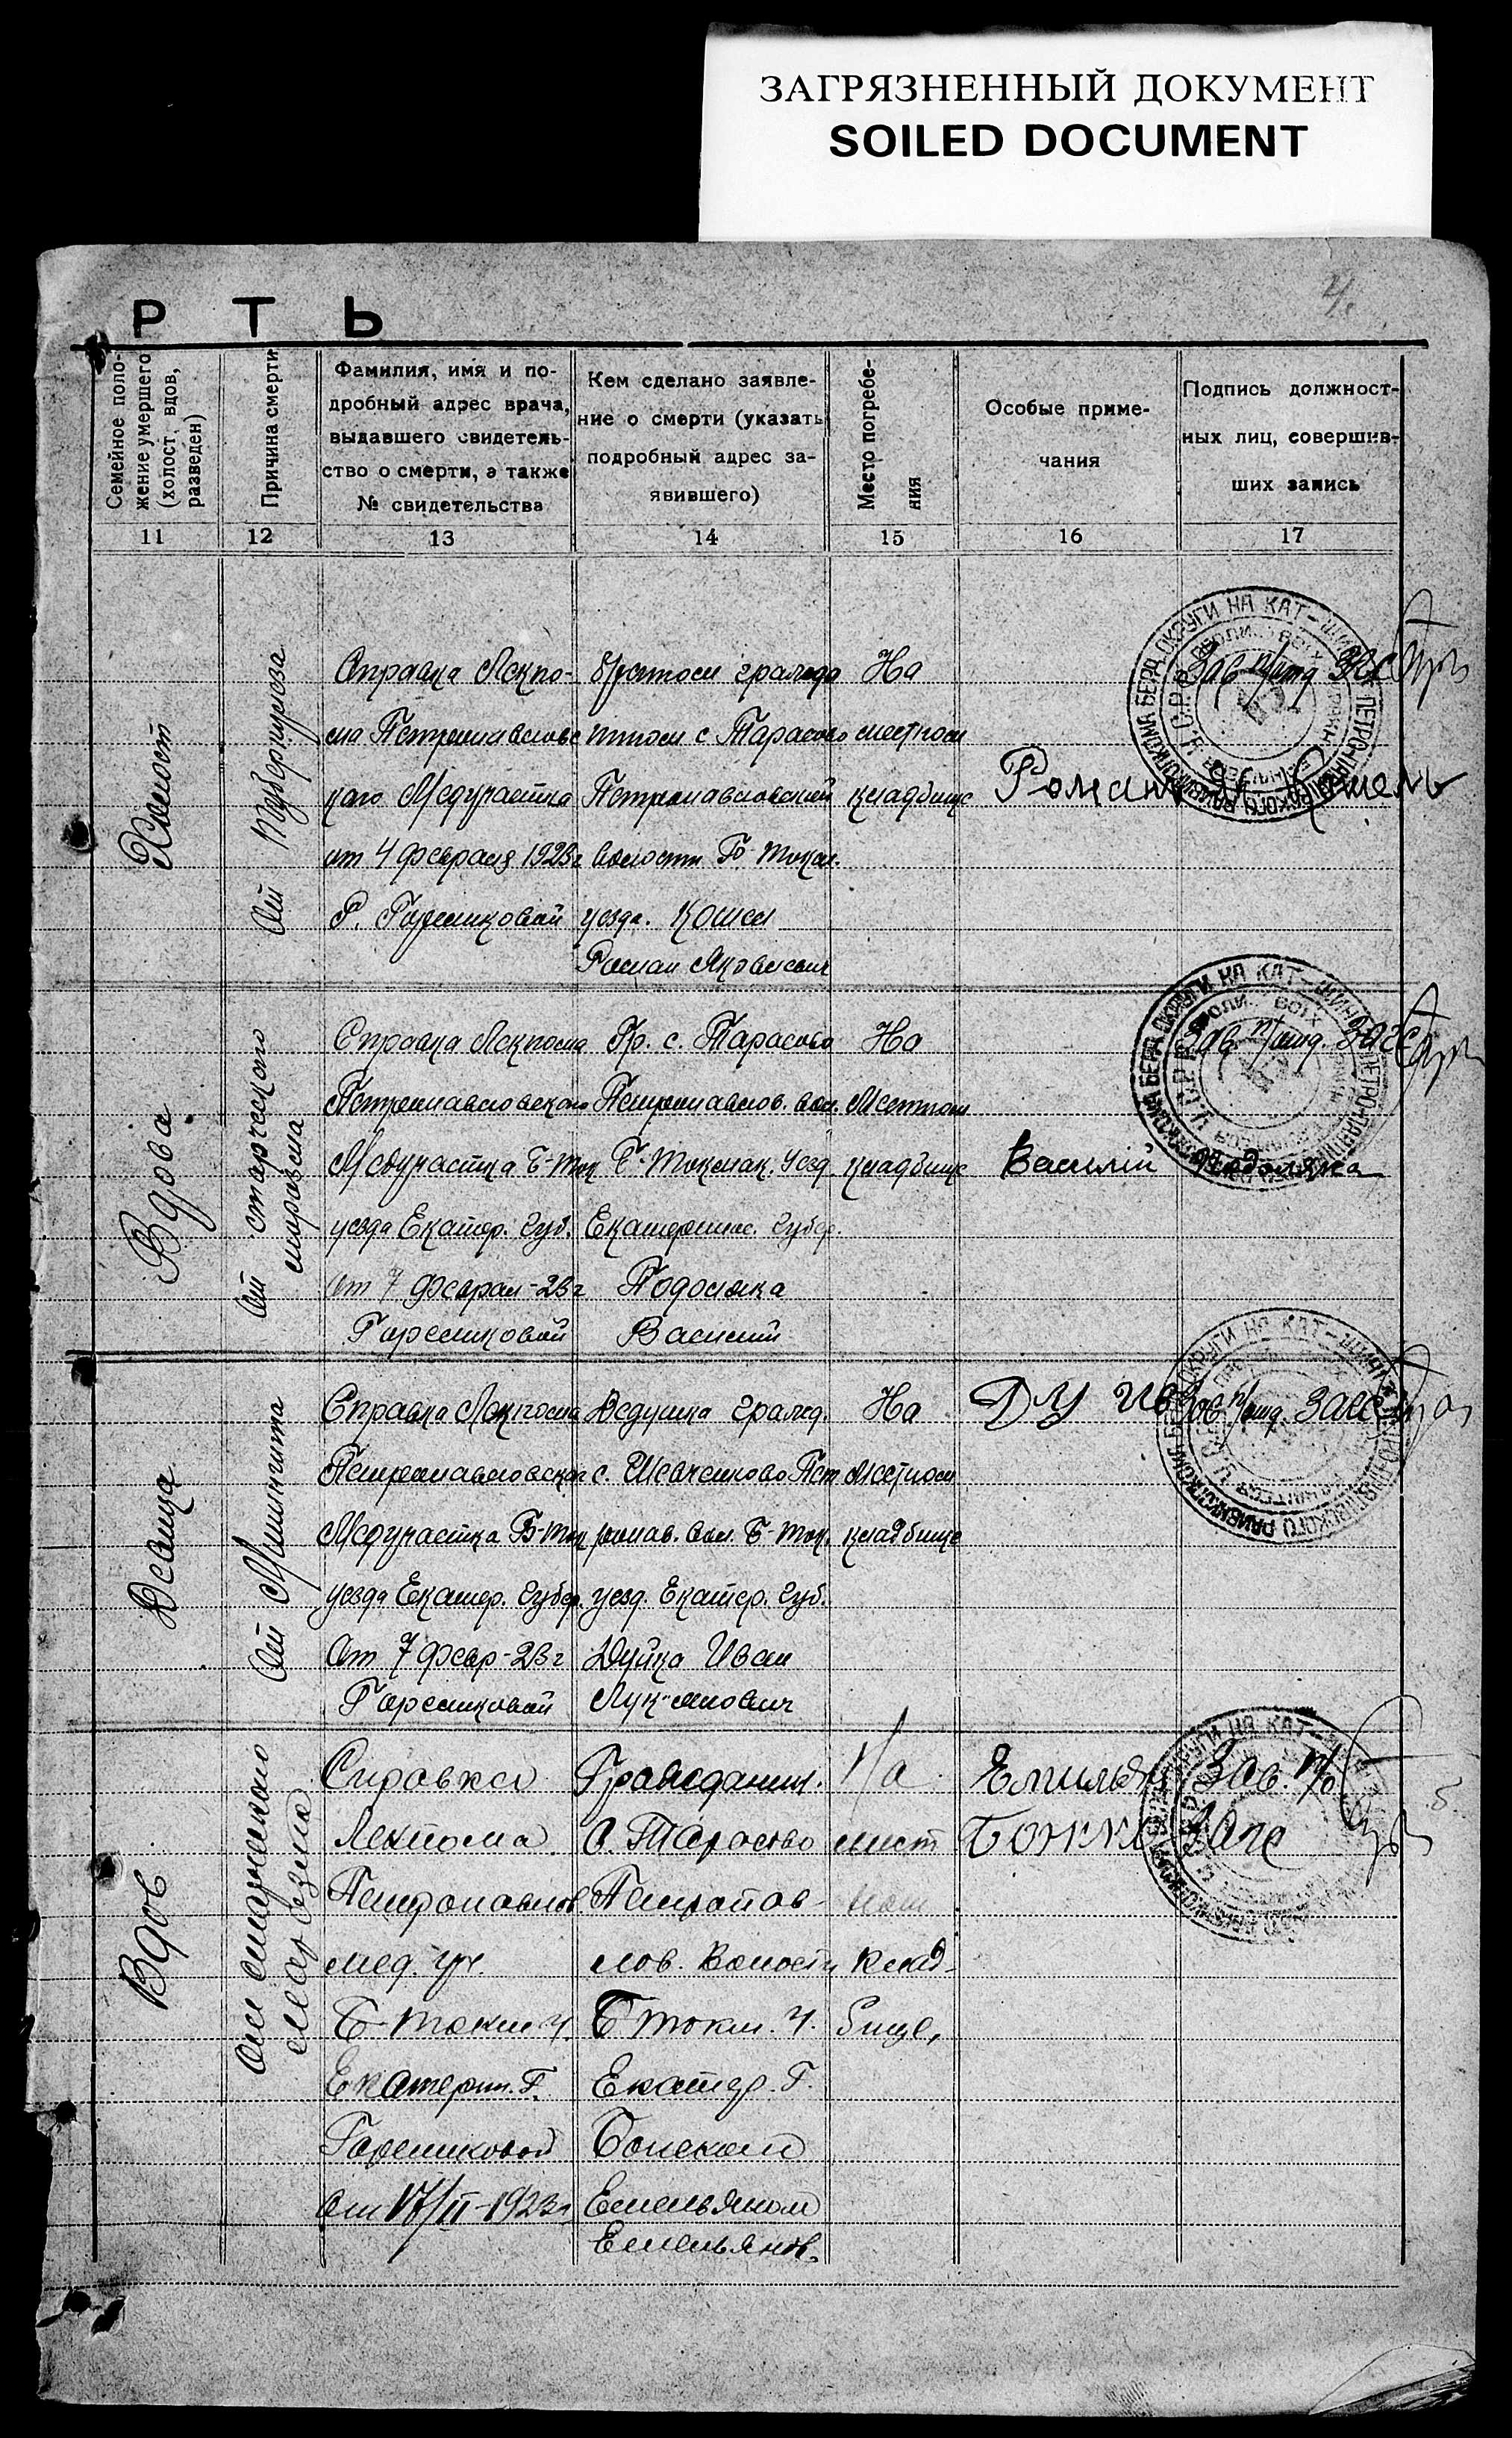 ЗАГРЯЗНЕННЫЙ ДОКУМЕНТ
SOILED DOCUMENT
4.
Р Т Ь
Семейное поло-
жение умершего
(холост, вдов,
разведен)
Причина смерти
Фамилия, имя и по-
дробный адрес врача,
выдавшего свидетель-
ство о смерти, а также
№ свидетельства
Кем сделано заявле-
ние о смерти (указать
подробный адрес за-
явившего)
Место погребе-
ния
Особые приме-
чания
Подпись должност-
ных лиц, совершив-
ших запись
11 12 13 14 15 16 17
Холост
От Туберкулеза
Справка Лекпо-
ма Петропавловс
кого Медучастка
от 4 февраля 1923 г
Р. Гореликовой
гражда
с Тарасово
Петропавловской
волости Б-Токм.
уезда. Кошел
Роман Яковлевич
На
местном
кладбище
Роман Кошель
Зав п/отд ЗАГС
Вдова
От старческого
маразма
Справка Лекпома
Петропавловского
Медучастка Б-Ток
уезда Екатер. Губ.
От 7 феврал-23 г
Гореликовой
Гр. с. Тарасово
Петропавлов. вол.
Б-Токмак. Уезд
Екатеринос. Губер.
Подоляка
Василий
На
Местном
кладбище
Василій Подоляка
Зав п/отд. Загс
Девица
От Менингита
Справка Лекпома
Петропавловског
Медучастка Б-Ток
уезда Екатер. Губер.
От 7 февр-23 г
Гореликовой
Дедушка гражд.
с. Шевченково Пет
ропав. вол. Б-Ток.
уезд. Екатер. Губ.
Дуйко Иван
Лукьянович
На
Местном
кладбище
Зав п/отд. Загс
Вдов
От старческого
маразма
Справка
Лекпома
Петропавлов
мед. уч.
Б-Токм У.
Екатерин. Г.
Гореликовой
От 17/II-1923 г
Гражданин.
С. Тарасово
Петропав-
лов. Волости
Б Токм. У.
Екатер. Г.
Емельяном
Емельянов.
На
мест
ном
клад-
бище,
Емильян
Божко
Зав. п/о
Загс